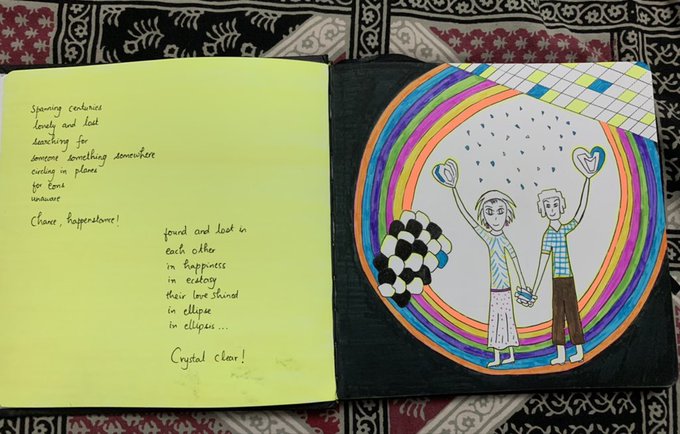 Spanning centuries
lovely and lost
searching for
someone something somewhere
circling in planes
for eons
unaware
Chance, happenstance!
found and lost in
each other
in happiness
in ecstasy
their love shined
in ellipse
in ellipsis...
Crystal clear!